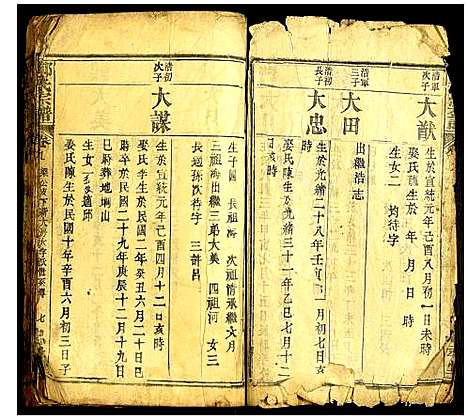 清初
次子
大猷
生於宣統元年己酉八月初一日未時
娶氏魏生於 年 月 日 時
生女二 均待字
清軍
三子
大田
出繼浩志
清初
長子
大忠
生於光緒二十八年壬寅 一月初八日
亥時
娶氏陳生於光緒三十一年乙巳七月十二
生子四 長祖海 次祖情承繼大月
三祖 出繼三弟大美 四祖河 女三
長適孫次待字 三許呂
清初
次子
大謀
生於宣統元年己酉四月十二日亥時
娶氏李生於民國二年癸丑六月二十日
時卒於民國二十九年庚辰十二月十九日
巳時葬地塴山
生女一 適邱
娶氏陳生於民國十年辛酉六月初三日子
氏宗譜
卷九
七